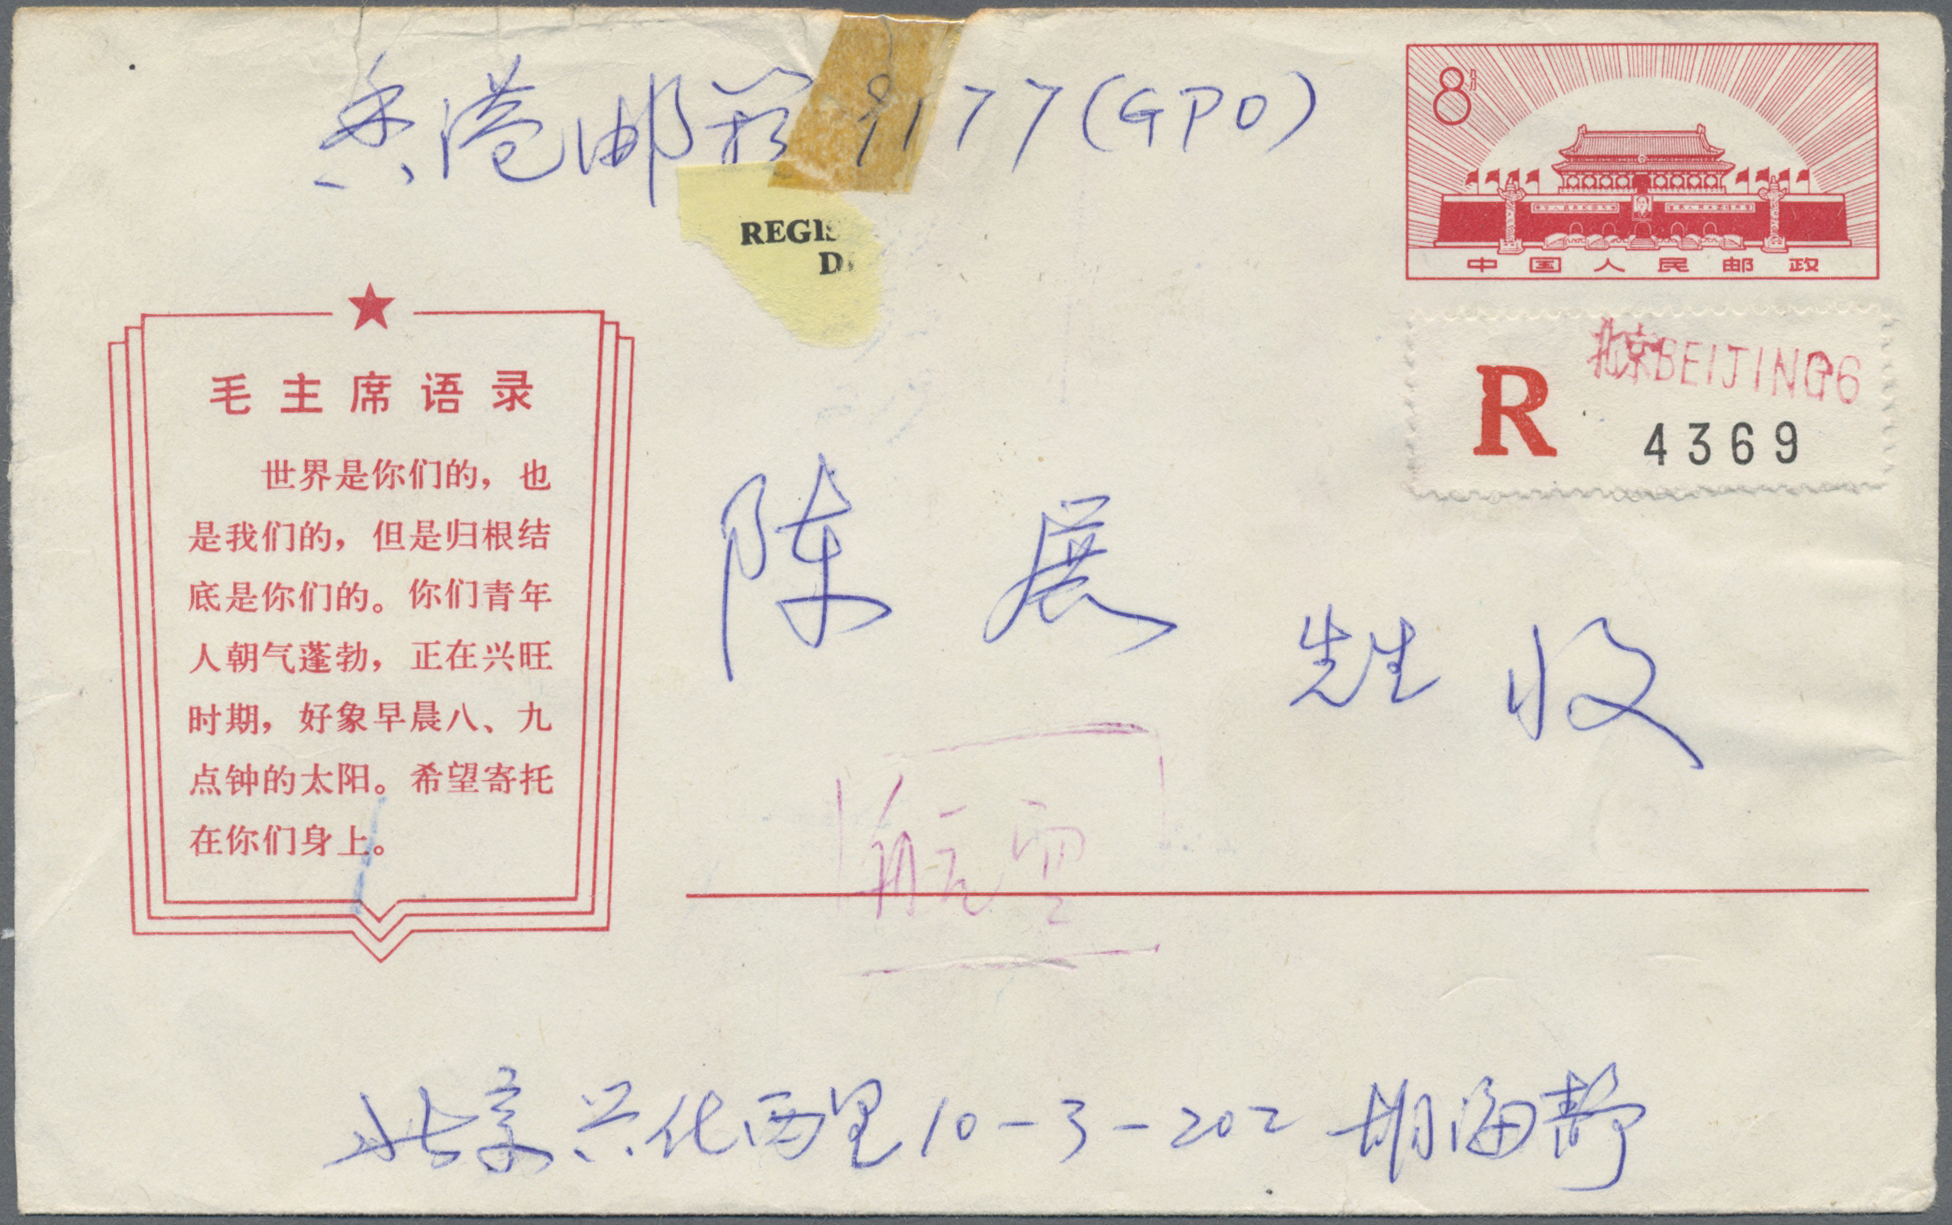 香港邮箱 9177 (GPO)
8分
中国人民邮政
REGIS
D
北京BEIJING6
R
4369
毛主席语录
世界是你们的，也
是我们的，但是归根结
底是你们的。你们青年
人朝气蓬勃，正在兴旺
时期，好象早晨八、九
点钟的太阳。希望寄托
在你们身上。
陈展先生收
航空
北京兴化西里10-3-202 胡海静